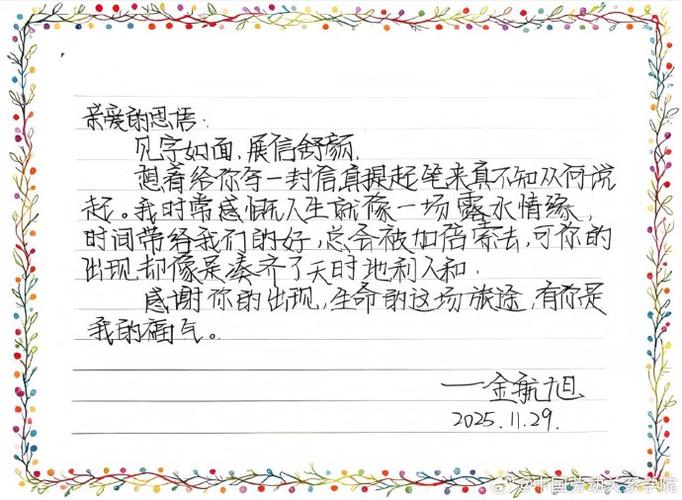 亲爱的思语：
见字如面，展信舒颜，
想着给你写一封信真提起笔来真不知从何说
起。我时常感慨人生就像一场露水情缘，
时间带给我们的好，总会被加倍索去，可你的
出现却像是凑齐了天时地利人和，
感谢你的出现，生命的这场旅途，有你是
我的福气。
——金航旭
2025.11.29.
@中国劳动关系学院